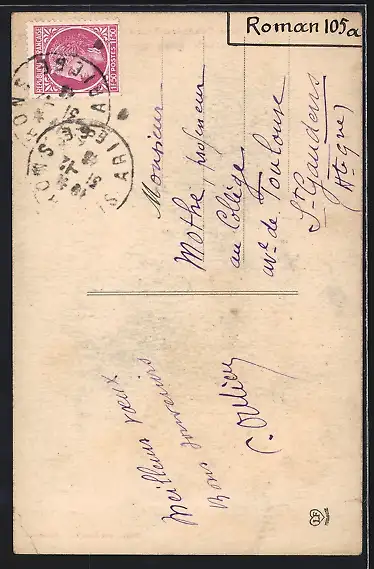 Roman 105a
RÉPUBLIQUE FRANÇAISE
POSTES 1F50
ARIÈGE
31 -12
ARIÈGE
Monsieur
Mothe professeur
au Collège
ave de Toulouse
St Gaudens
(Hte Gne)
Meilleurs vœux
Bons souvenirs